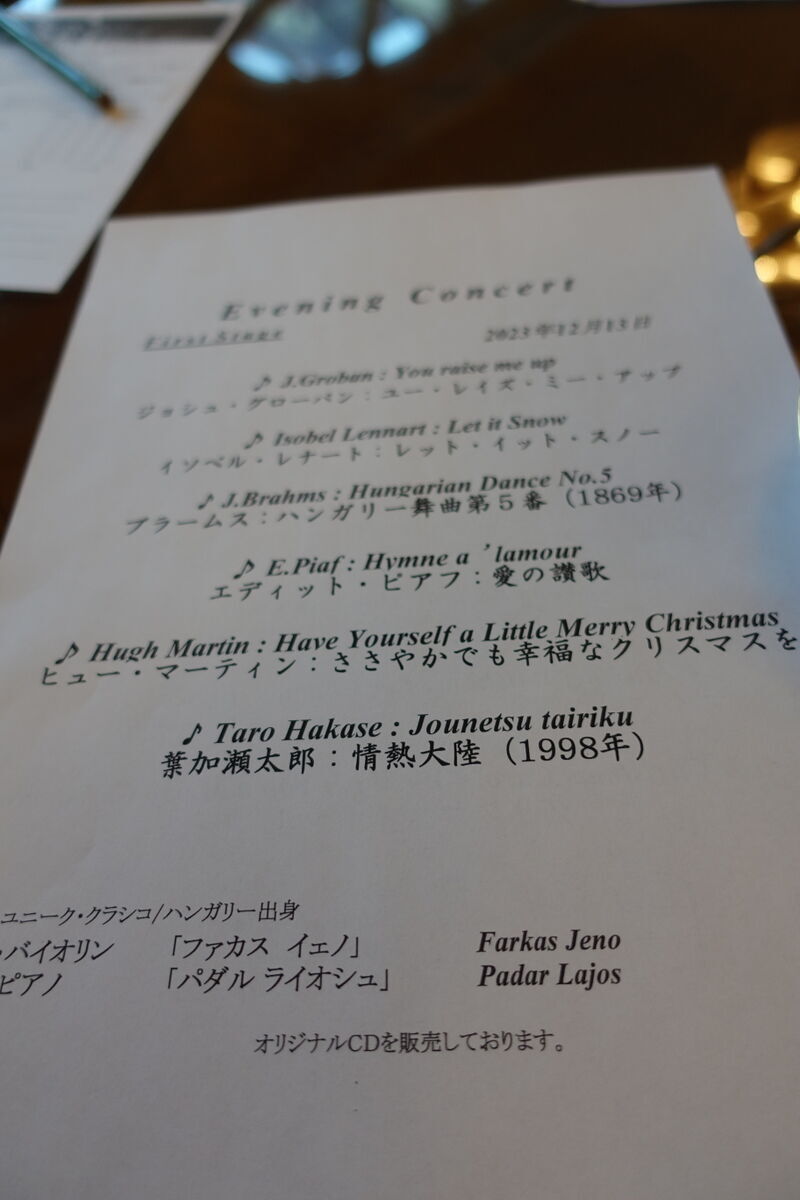 Evening Concert
First Stage 2023年12月13日
♪ J.Groban : You raise me up
ジョシュ・グローバン：ユー・レイズ・ミー・アップ
♪ Isobel Lennart : Let it Snow
イソベル・レナート：レット・イット・スノー
♪ J.Brahms : Hungarian Dance No.5
ブラームス：ハンガリー舞曲第５番（1869年）
♪ E.Piaf : Hymne a ’lamour
エディット・ピアフ：愛の讃歌
♪ Hugh Martin : Have Yourself a Little Merry Christmas
ヒュー・マーティン：ささやかでも幸福なクリスマスを
♪ Taro Hakase : Jounetsu tairiku
葉加瀬太郎：情熱大陸（1998年）
ユニーク・クラシコ/ハンガリー出身
・バイオリン 「ファカス イェノ」 Farkas Jeno
ピアノ 「パダル ライオシュ」 Padar Lajos
オリジナルCDを販売しております。